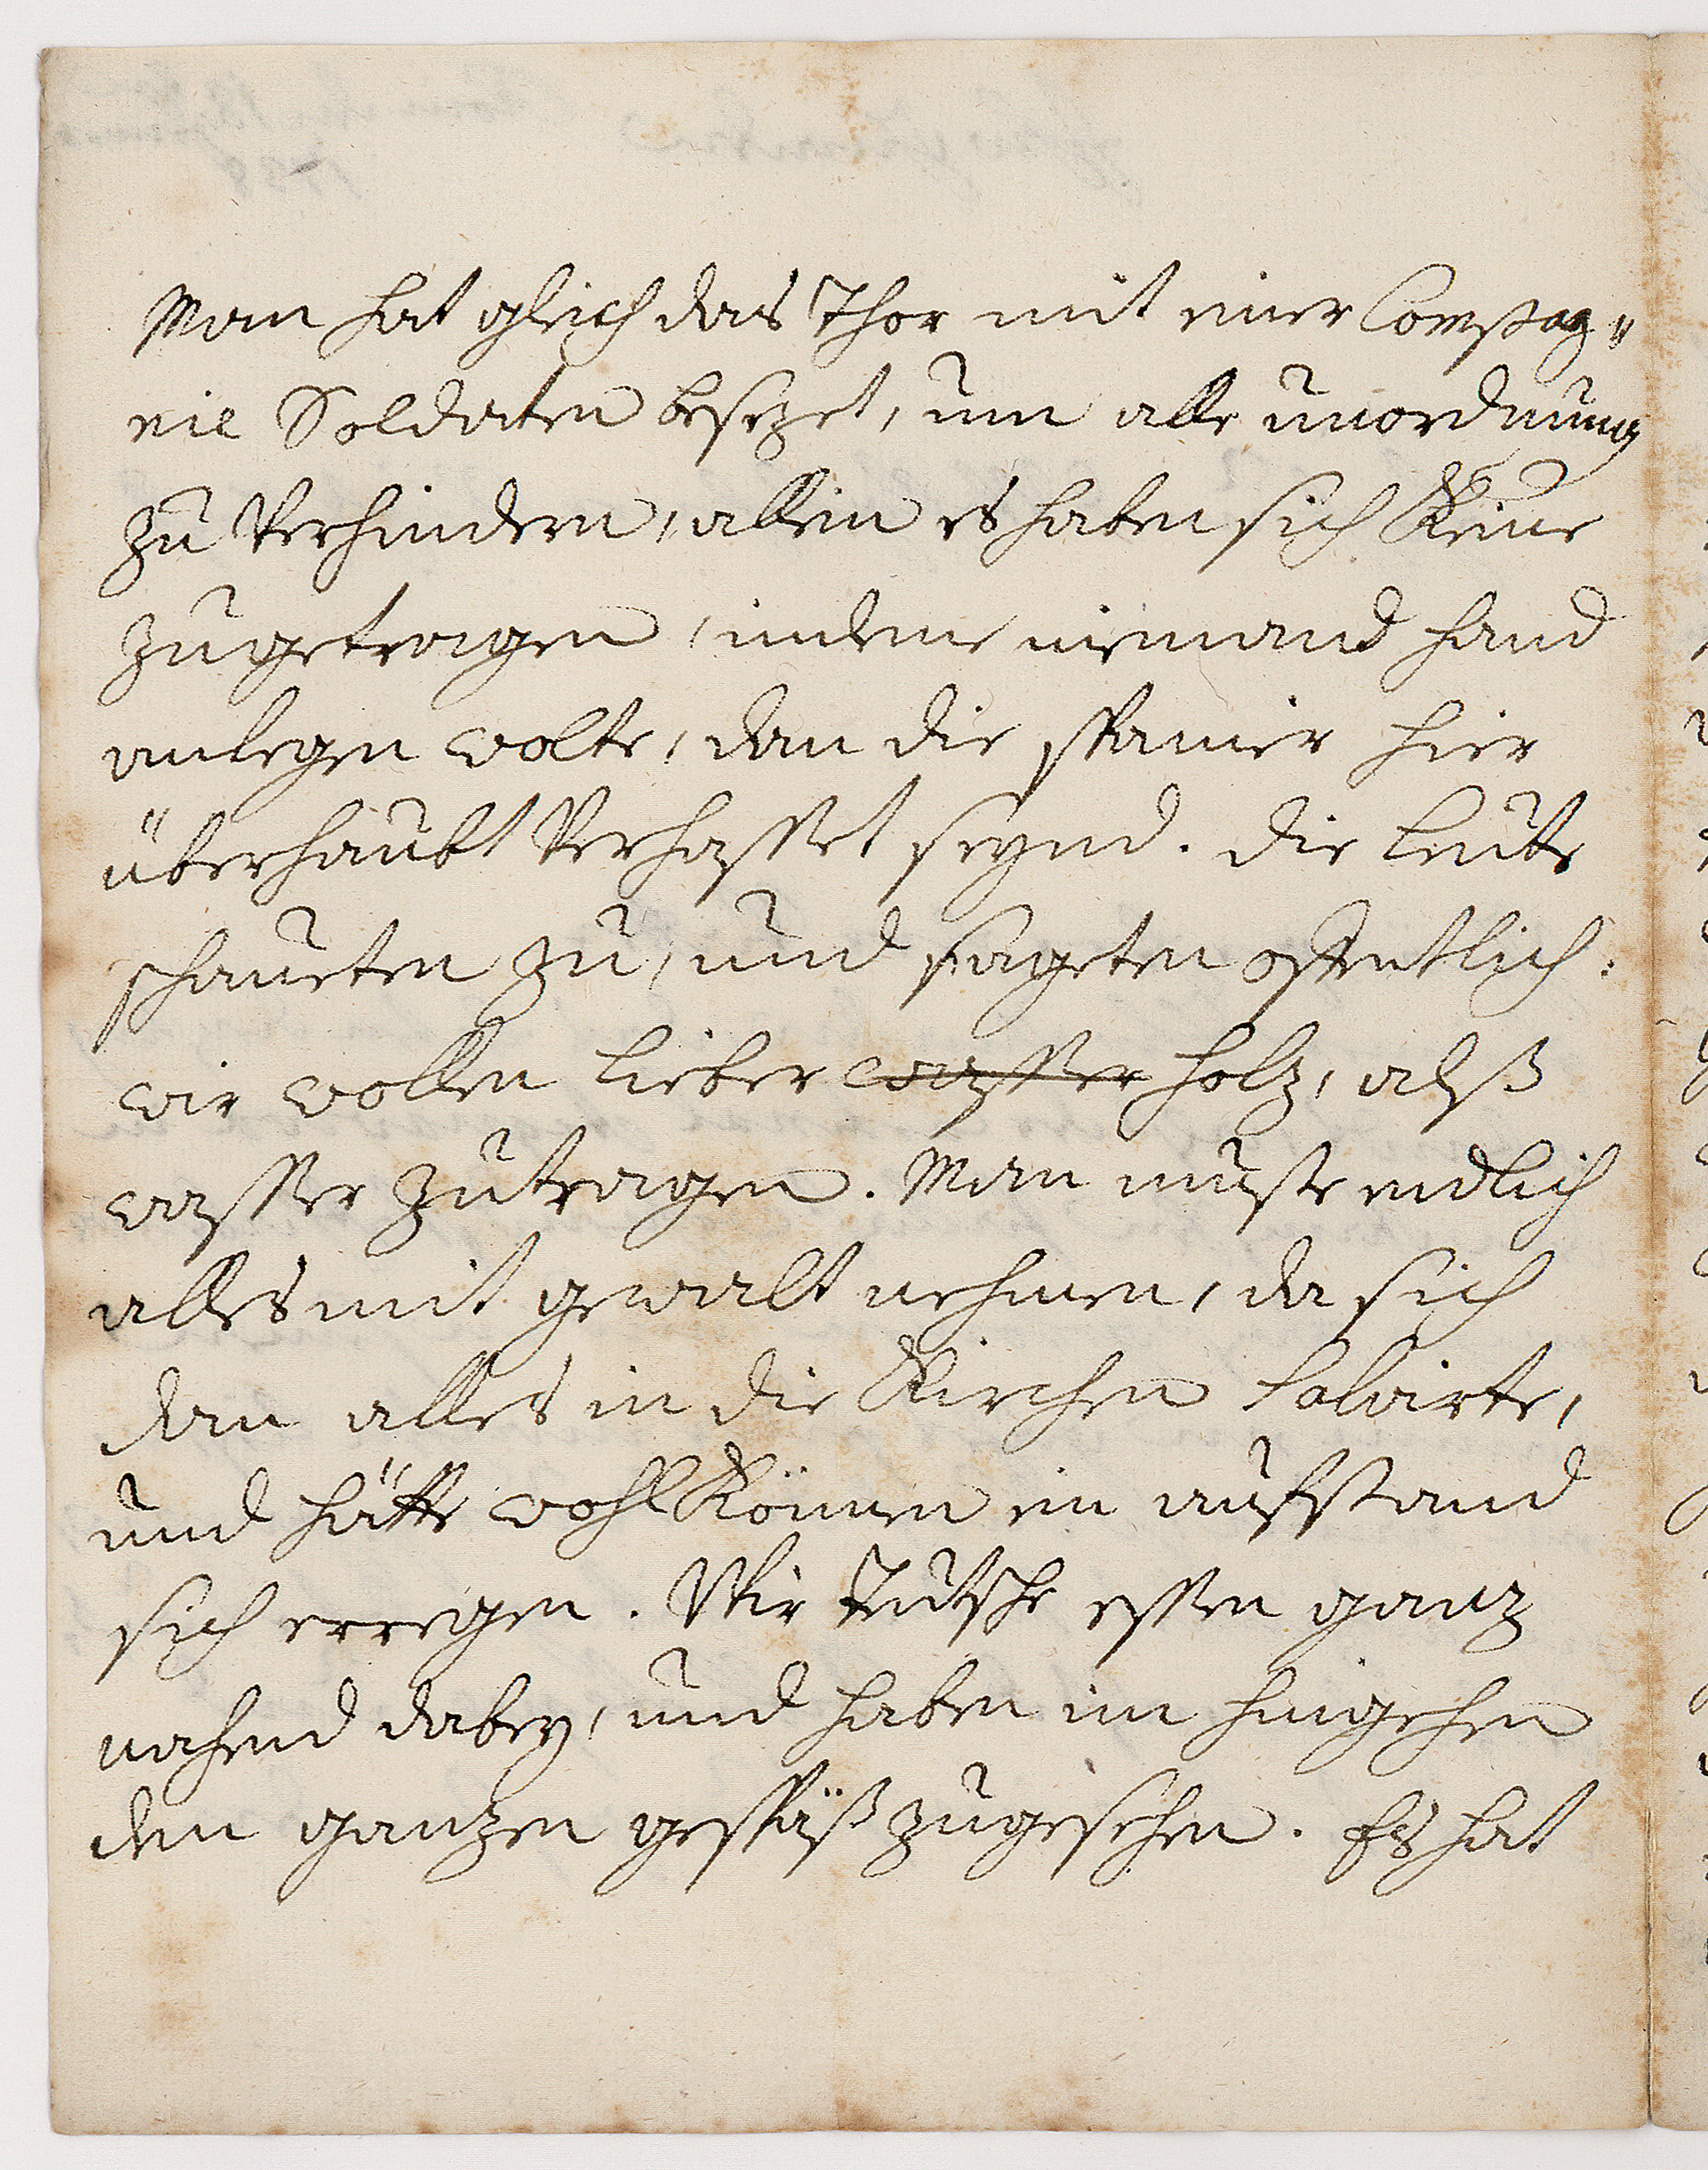 Man hat gleich das Thor mit einer Compag„
nie Soldaten besezet, um alle unordnung
zu Verhindern, allein es haben sich Keine
zugetragen, indeme niemand hand
anlegen wolte, dan die spanier hier
überhaubt Verhasset seynd. die leute
schaueten zu, und sageten offentlich:
wir wollen lieber wasser holz, alß
wasser zutragen. Man muste endlich
alles mit gewalt nehmen, da sich
dan alles in die Kirchen salvirte,
und hätte wohl Können ein aufstand
sich erregen. Wir teutsche essen ganz
nahend dabey, und haben im hingehen
den ganzen gespäß zugesehen. Es hat